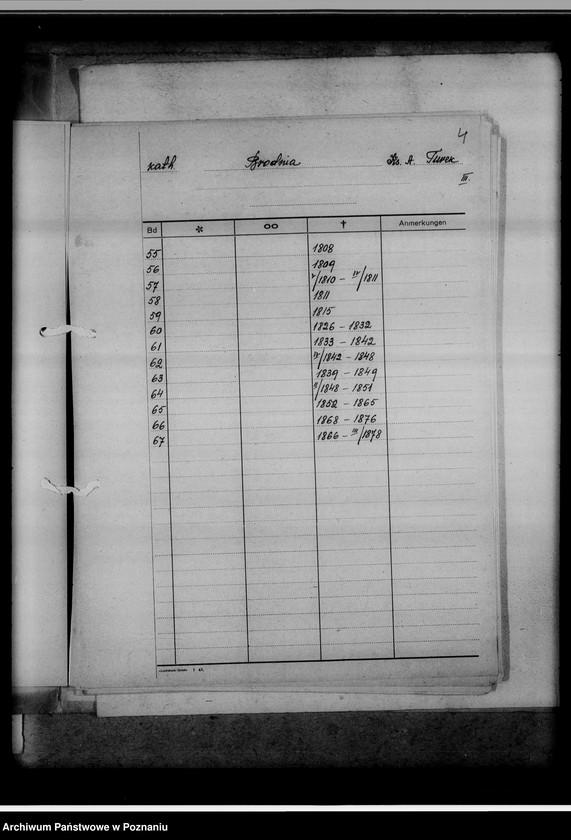 4
kath. Brodnia Ks. A. Turek
III.
Bd * oo † Anmerkungen
55 1808
56 1809
57 V/1810 – IV/1811
58 1811
59 1815
60 1826 – 1832
61 1833 – 1842
62 IV/1842 – 1848
63 1839 – 1849
64 II/1848 – 1851
65 1852 – 1865
66 1868 – 1876
67 1866 – III/1878
Archiwum Państwowe w Poznaniu